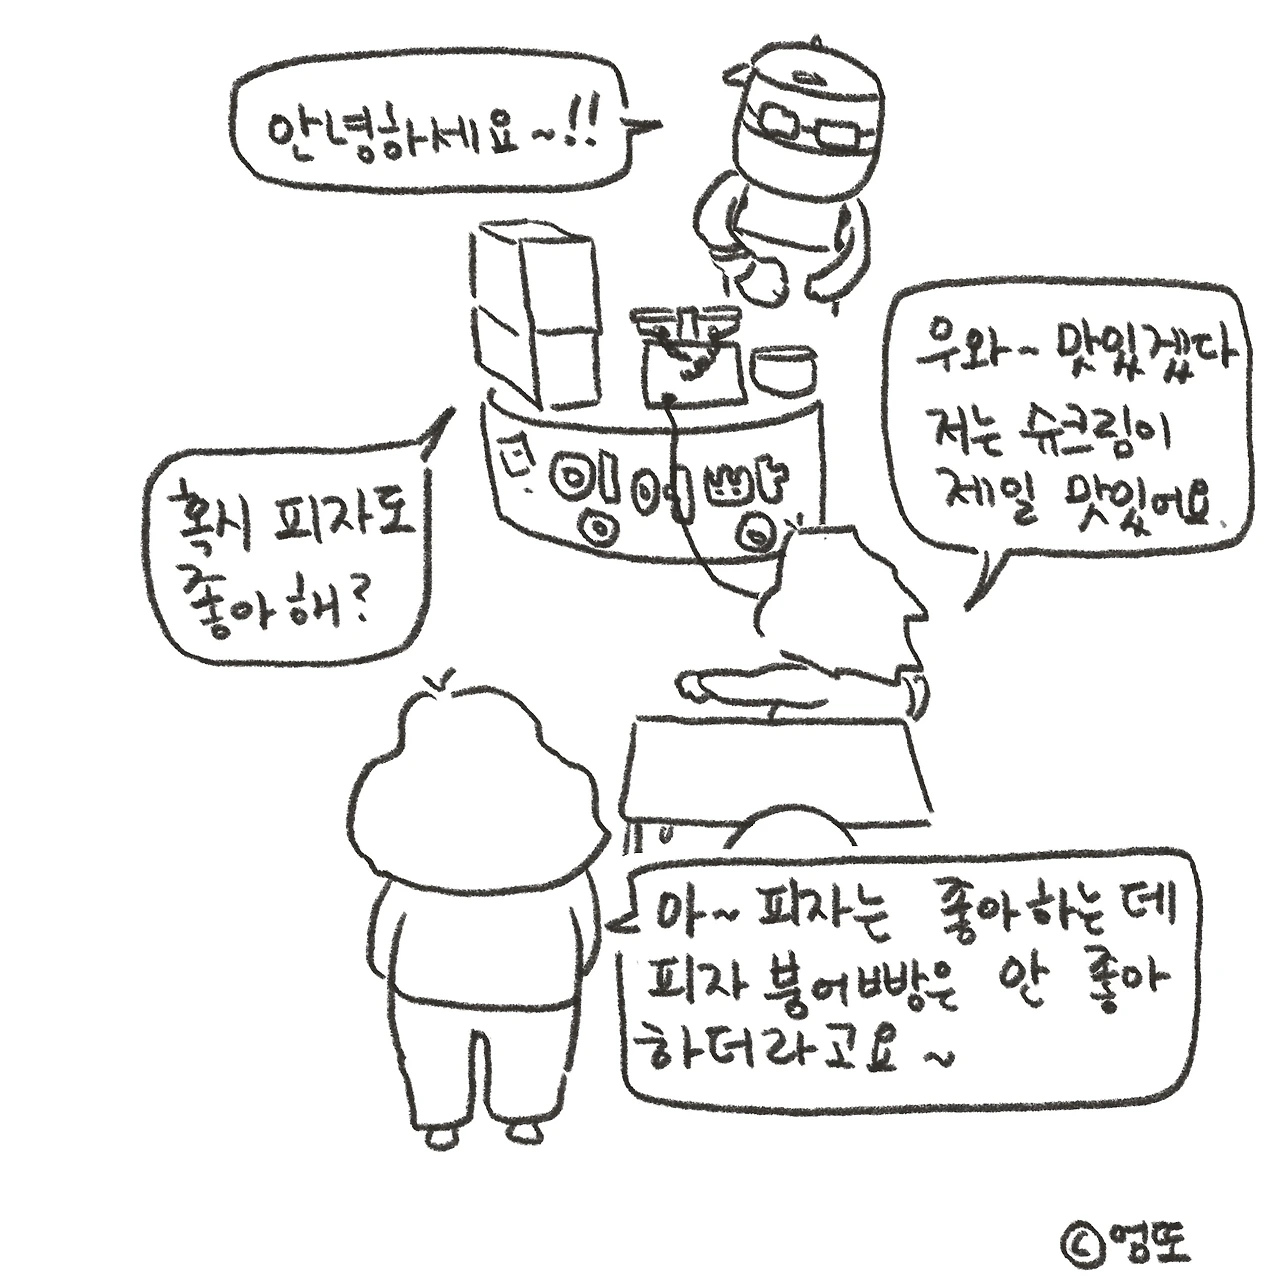 안녕하세요~!!
우와~ 맛있겠다
저는 슈크림이
제일 맛있어요
혹시 피자도
좋아해?
아~ 피자는 좋아하는데
피자 붕어빵은 안 좋아
하더라고요~
©엉또